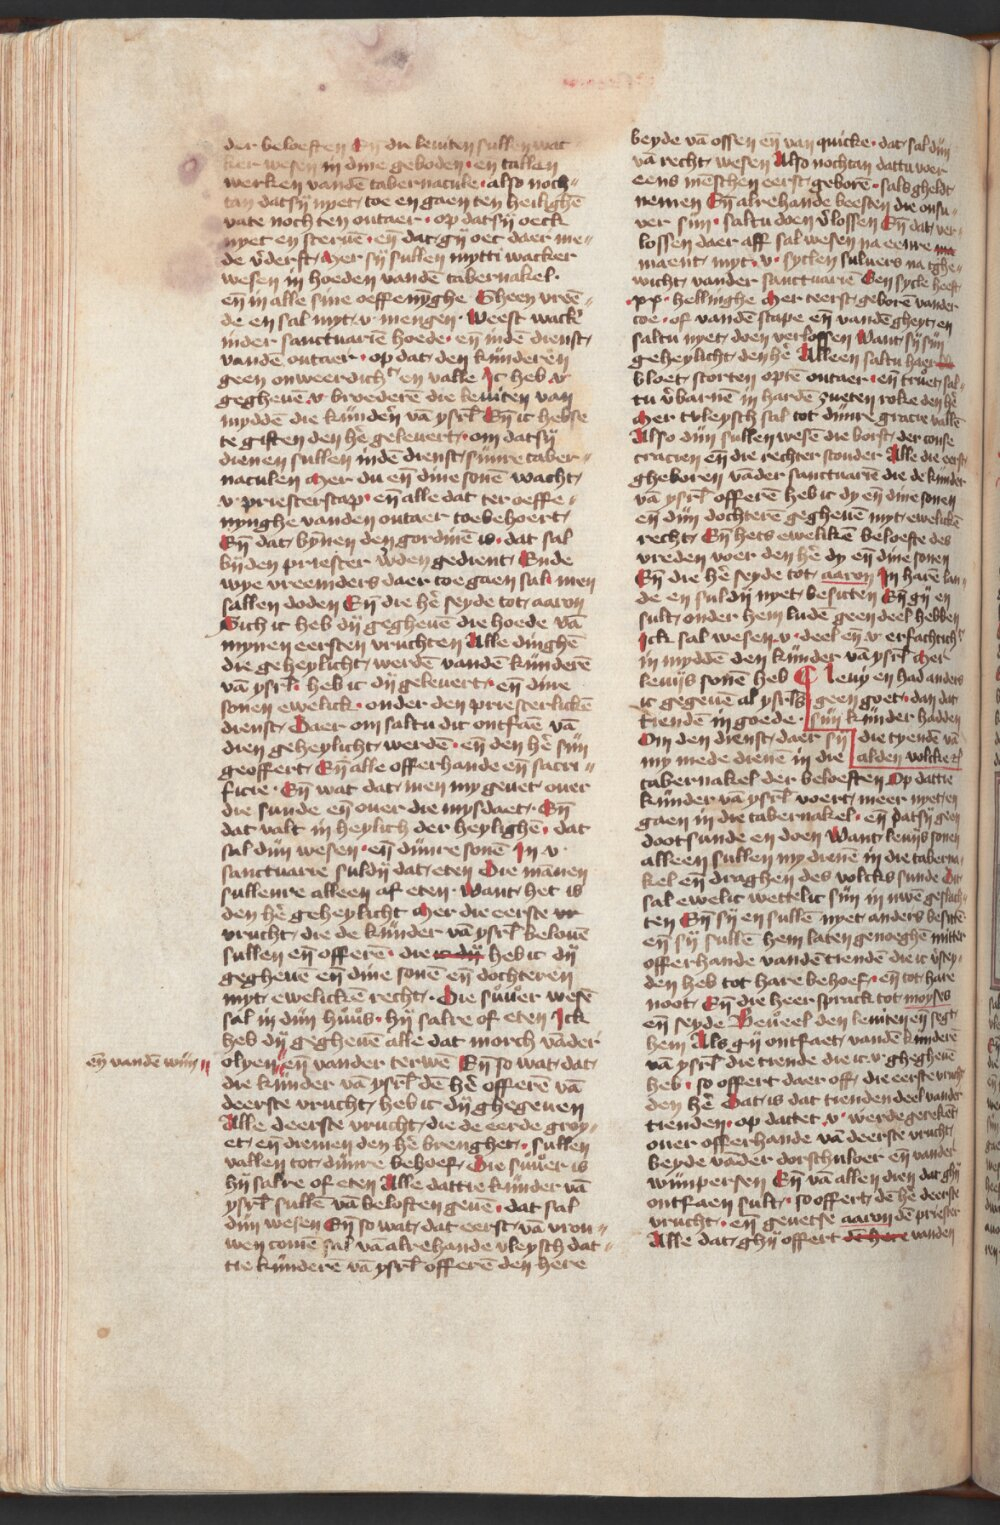 der beloeften Eñ die leuiten sullen wac-
ker wesen in dine geboden · en tallen
werken vandē tabernacule · also noch=
tan datsij nyet / toe en gaen ten heilighē
vate noch ten outaer · op datsij oeck
nyet en steruē · eñ dat gij oec daer me=
de v̄derft / Mer sij sullen mytti wacker
wesen in hoeden vandē tabernakel ·
eñ in alle sine oeffenijghe Gheen vrēe=
de en sal myt v mengen · Weest wack̄
inder sanctuariē hoede · en indē dienst /
vandē outaer · op dat den kinderen
geen onweerdicheit en valle Ic heb v
gegheuē v broederē die leuiten van
myddē die kinden̄ vā ysrl̄ Eñ ic hebse
te giften den hē geleuert / om datsij
dienen sullen indē dienst / sijnre taber=
naculen Mer du eñ dine sonē wacht /
v priesterscap · eñ alle dat ter oeffe=
nynghe vanden outaer toebehoert /
Eñ dat bynnen den gordinē is · dat sal
bijden priester w̄den gedient / Ende
wye vreemders daer toe gaen sal · men
sallen doden Eñ die hē seyde tot / aaron
Sich ic heb dij gegheuē die hoede vā
mynen eersten vruchten Alle dinghē
die geheylicht / werdē vandē kinderē
vā ysrl̄ · heb ic dij geleuert / eñ dine
sonen ewelick · onder den priesterlickē
dienst / Daer om saltu dit ontfaē vā
dien geheylicht / werdē · eñ den hē sijn
geoffert / Eñ alle offerhande eñ sacri=
ficie · Eñ wat dat / men my geuet ouer
die sunde eñ ouer die mysdaet / Eñ
dat valt in heylich der heylighē · dat
sal dijn wesen · eñ dijnre sonē In v
sanctuarie suldij dat / eten Die mānen
sullenre alleen af eten · Want / het is
den hē geheylicht Mer die eerste vr
vrucht / die de kinder vā ysrl̄ belouē
sullen eñ offerē · die ic dij heb ic dij
gegheuē eñ dine sonē eñ dochteren
myt / ewelickē recht / Die suuer wesē
sal in dijn huus · hij salre of eten Ick
heb dij gegheuē alle dat morch vāder
eñ vandē wijn //
olyen // eñ vander terwē Eñ so wat / dat /
die kinder vā ysrl̄ dē hē offerē vā
deerste vrucht / heb ic dij ghegeuen
Alle deerste vrucht / die de eerde groy=
et / eñ diemen den hē brenghet / sullen
vallen tot / dijnre behoef / Die suuer is
hij salre of eten Alle dattie kinder vā
ysrl̄ sullē vā beloften geuē · dat sal
dijn wesen Eñ so wat / dat eerst / vā vrou=
wen comē sal vā alrehande vleysch dat=
tie kinderē vā ysrl̄ offerē den here
beyde vā ossen eñ van quicke · dat / sal dijn
vā recht / wesen Also nochtan dattu voer
eens mēschen eerst / geborē · sals gheldt
nemen Eñ alrehande beesten die onsu=
uer sijn · saltu doen v̄lossen Eñ dat / ver=
lossen daer aff sal wesen na eenre ma
maent / myt · v · syclen siluers na tghe=
wicht / vander sanctuariē Een sycle heeft
· xx · hellinghe Mer teerst / geborē vander
coe · of vandē scape eñ vandē gheyt / en
saltu nyet / doen verlossen Want / sij sijn
geheylicht / den hē Alleen saltu haer
bloet / storten optē outaer · eñ truet / sal=
tu v̄barnē in hardē zueten roke den hē
Mer tvleysch sal tot dijnre gracie vallē
Also dijn sullen wesē die borst / der conse
cracien eñ die rechter scouder Alle die eerst
gheboren vāder sanctuariē die de kinder
vā ysrl̄ offerē heb ic dij eñ dine sonen
eñ dijn dochterē gegheuē myt / ewelickē
recht / Eñ hets ewelikē beloefte des
vreden voer den hē dij eñ dine sonen
Eñ die hē seyde tot / aaron In harē lan=
de en suldij nyet / besitten Eñ gij en
sult / onder hem ludē geen deel hebben
Ick sal wesen v deel eñ v erfachticheit
in myddē den kinder vā ysrl̄ Mer
leuijs sonē heb
ic gegeuē al ysrl̄s
tiendē in goede ·
Om den dienst / daer sij
my mede dienē in die
¶ Leuij en had anders
geen goet · dan dat
sijn kinder hadden
die tyendē vā
alden volcke
tabernakel der beloeften Op dattie
kinder vā ysrl̄ voert / meer nyet / en
gaen in die tabernakel · eñ datsij geen
dootsunde en doen Want / leuijs sonen
alleen sullen my dienē in die taberna=
kel eñ draghen des volcks sunde Dit
sal ewelic wettelic sijn in uwē geslach=
ten Eñ sij en sullē nyet anders besittē
eñ sij sullē hem laten genoeghē mitter
offerhande vandē tiendē die ic v̄sey=
den heb tot hare behoef · eñ tot / hare
noot / Eñ die heer sprack tot / moyses
eñ seyde Beueel den leuiten eñ segt /
hem Als gij ontfaet / vandē kinderē
vā ysrl̄ die tiende die ic v ghegheuē
heb · so offert daer off / die eerste vrucht
den hē Dat / is dat tienden deel vander
tienden · op dattet / v · werde gerekēt
ouer offerhande vā deerste vrucht /
beyde vāder dorschuloer eñ vander
wijnpersen Eñ vā allen dien dat ghij
ontfaen sult / so offert / dē hē deerste
vrucht / eñ geuetse aaron dē priester
Alle dat / ghij offert dē here vanden